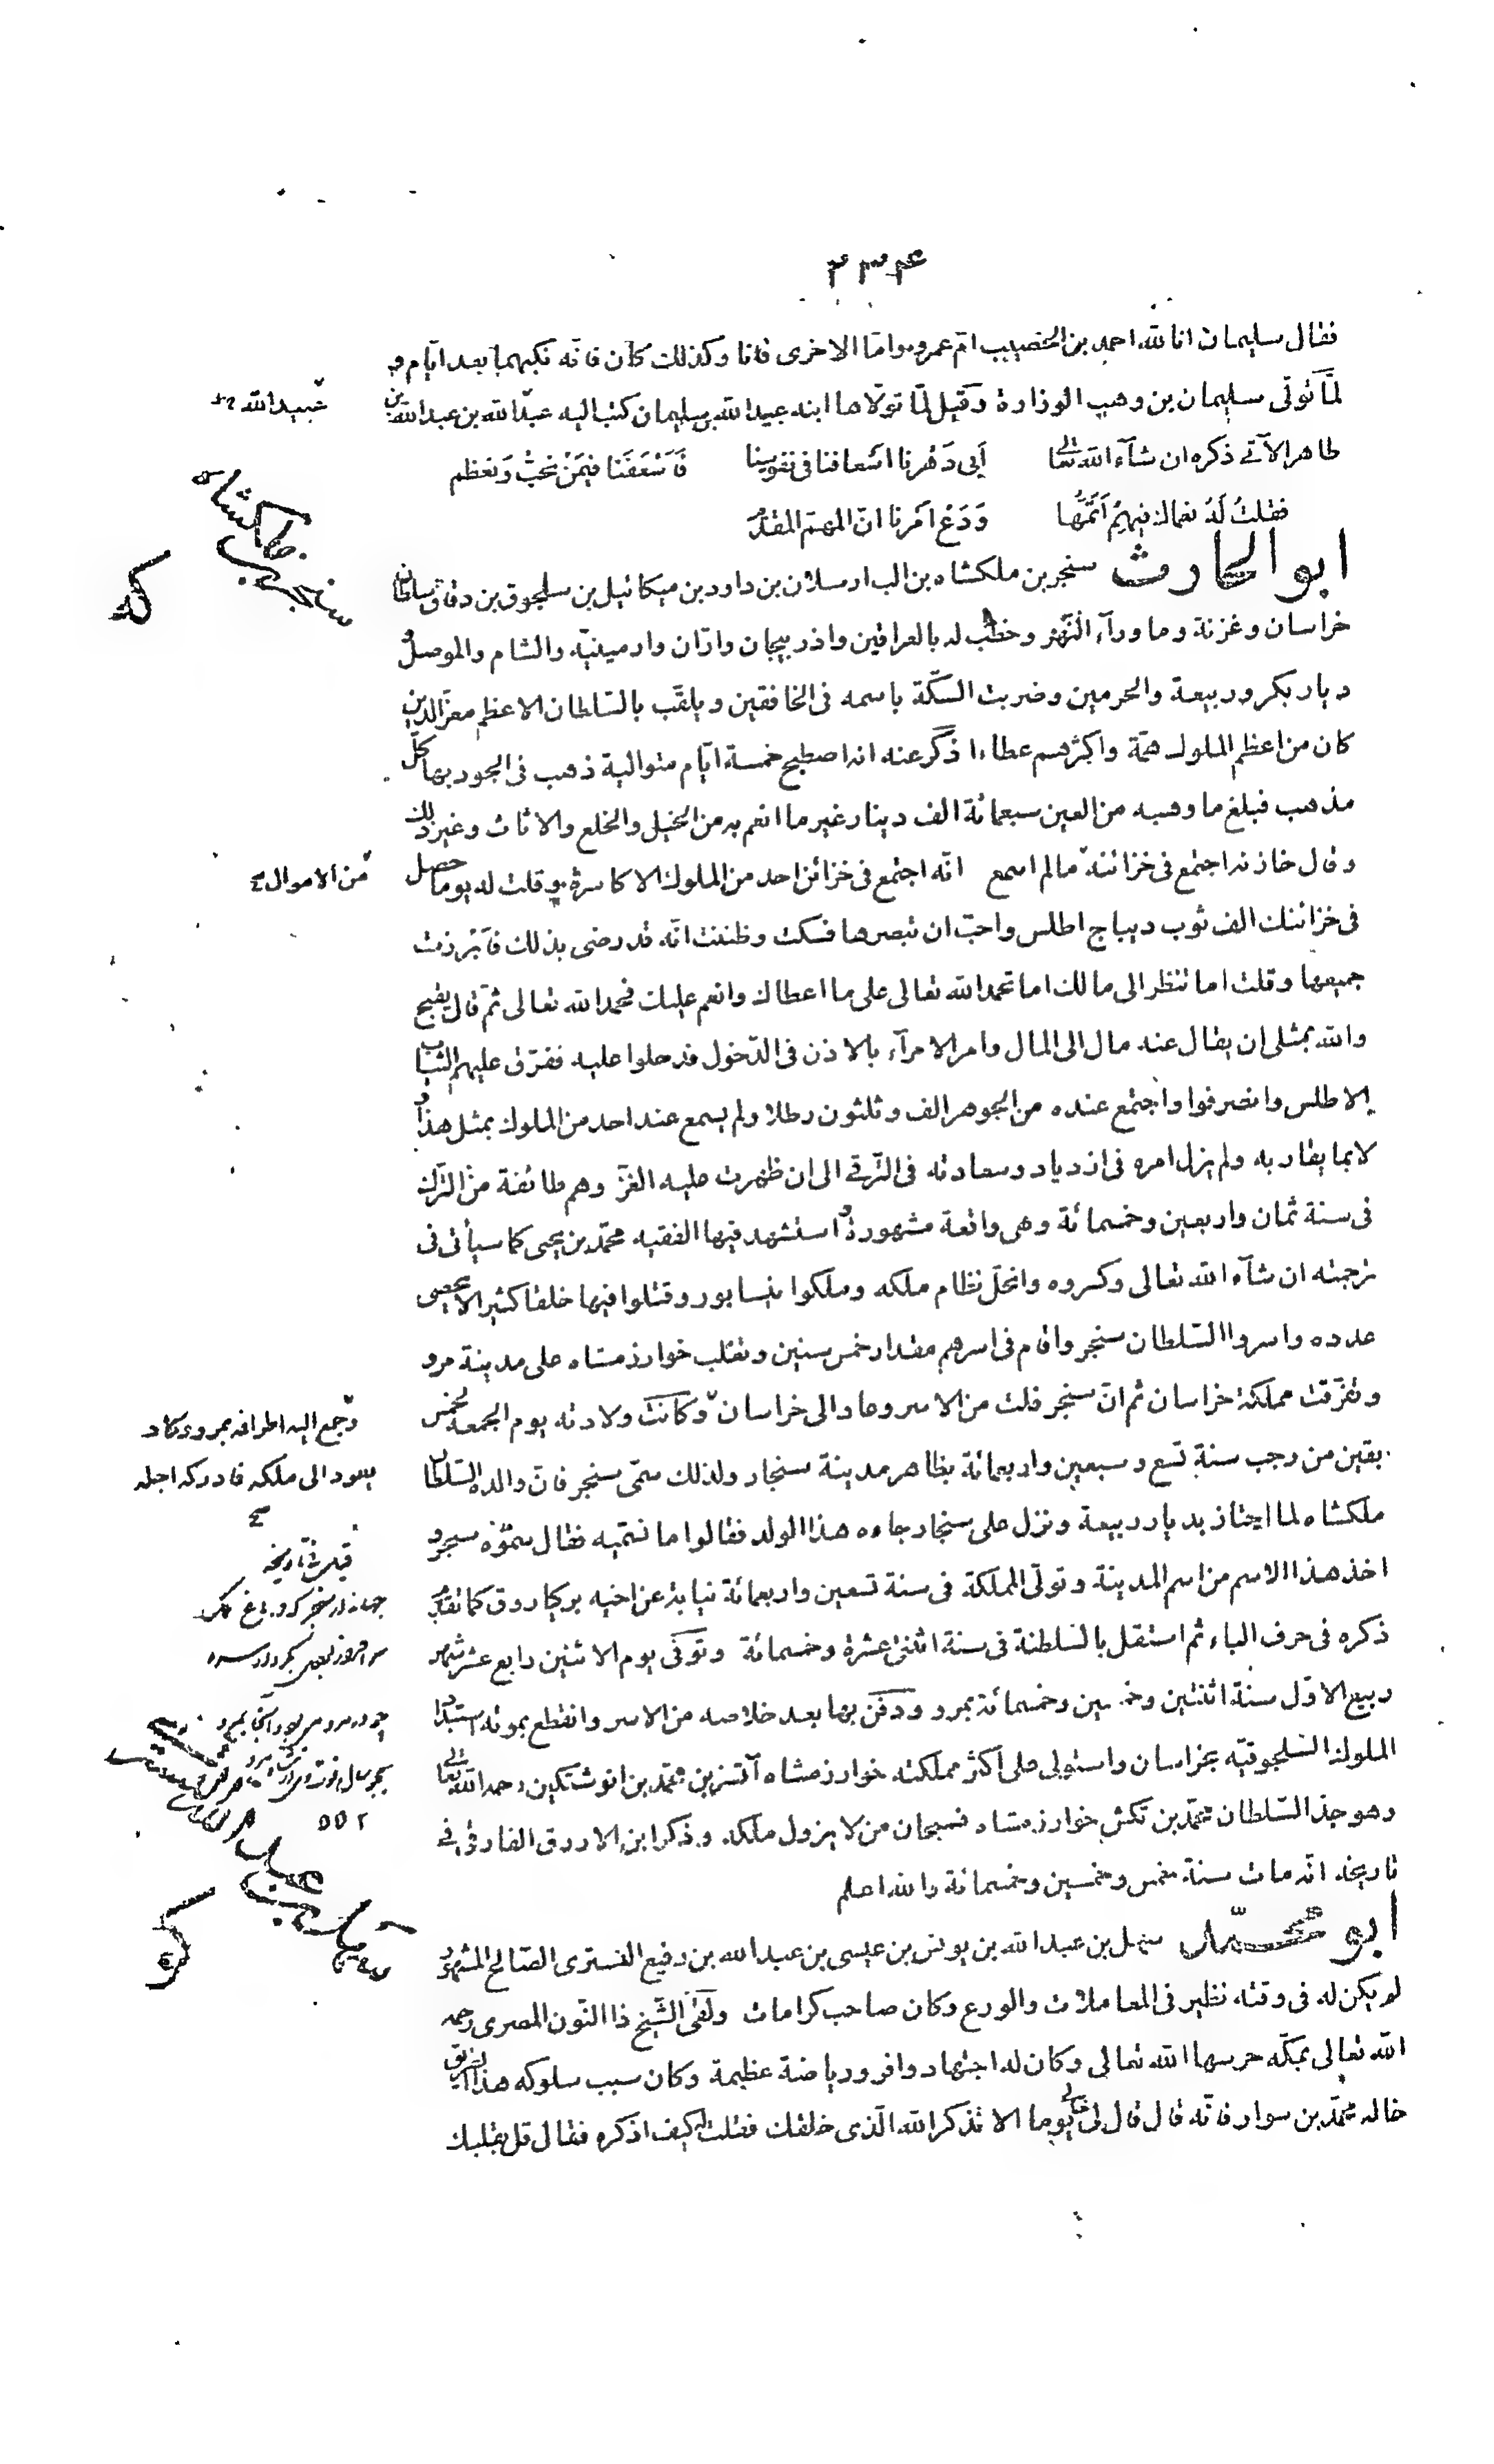 ٢٣٤
فقال سليمان انا لله احمد بن الخصيب امّ عمرو واما الاخرى فانا وكذلك كان فانّه نكبهما بعد ايّام و
لمّا تولّى سليمان بن وهب الوزارة وقيل لمّا تولّاها ابنه عبيد الله بن سليمان كتب اليه عبد الله بن عبد الله بن
عبيد الله صح
طاهر الآتى ذكره ان شآء الله تعالى ابى دهرنا اسعافنا فى نفوسنا فَاَسْعَفَنا فيمَنْ نحبّ وَنعظم
فقلتُ لَهُ نعماك فيهمْ اَتمَّها وَدَعْ اَمرنا انّ المهمّ المقدّم
ابو الحارث سنجر بن ملكشاه بن الب ارسلان بن داود بن ميكائيل بن سلجوق بن دقاق سلطان
سنجر بن ملكشاه
خراسان وغزنة وما ورآء النّهر وخطب له بالعراقين واذربيجان وارّان وارمينيّة والشام والموصل و
ديار بكر وربيعة والحرمين وضربت السكّة باسمه فى الخافقين ويلقّب بالسّلطان الاعظم معزّ الدين
كان من اعظم الملوك همّة واكثرهم عطاءا ذكر عنه انه اصطبح خمسة ايّام متوالية ذهب فى الجود بها كلّ
مذهب فبلغ ما وهبه من العين سبعمائة الف دينار غير ما انعم به من الخيل والخلع والاثاث وغير ذلك
وقال خازنه اجتمع فى خزائنه ما لم اسمع انّه اجتمع فى خزائن احد من الملوك الاكاسرة وقلت له يوما حصل
من الاموال صح
فى خزائنك الف ثوب ديباج اطلس واحبّ ان تبصرها فسكت وظننت انّه قد رضى بذلك فاَبْرزت
جميعها وقلت اما تنظر الى مالك اما تحمد الله تعالى على ما اعطاك وانعم عليك فحمد الله تعالى ثمّ قال يقبح
والله بمثلى ان يقال عنه مال الى المال وامر الامرآء بالاذن فى الدّخول فدخلوا عليه ففرّق عليهم الثياب
الاطلس وانصرفوا واجتمع عنده من الجوهر الف وثلثون رطلا ولم يسمع عند احد من الملوك بمثل هذا و
لا بما يقاربه ولم يزل امره فى ازدياد وسعادته فى الترّقى الى ان ظهرت عليه الغزّ وهم طائفة من الترّك
فى سنة ثمان واربعين وخمسمائة وهى واقعة مشهورة استشهد فيها الفقيه محمّد بن يحيى كما سيأتى فى
ترجمته ان شآء الله تعالى وكسروه وانحلّ نظام ملكه وملكوا نيسابور وقتلوا فيها خلقا كثيرا لا يحصى
عدده واسروا السّلطان سنجر واقام فى اسرهم مقدار خمس سنين وتغلب خوارزمشاه على مدينة مرو
وتفرّقت مملكة خراسان ثم انّ سنجر فلت من الاسر وعاد الى خراسان وكانت ولادته يوم الجمعه لخمس
وجمع اليه اطرافه بمرو وكاد
يعود الى ملكه فادركه اجله
صح
بقين من رجب سنة تسع وسبعين واربعمائة بظاهر مدينة سنجار ولذلك سمّى سنجر فانّ والده السّلطان
ملكشاه لما اجتاز بديار ربيعة ونزل على سنجار جاءه هذا الولد فقالوا ما نسمّيه فقال سمّوه سنجر و
اخذ هذا الاسم من اسم المدينة وتولّى المملكة فى سنة تسعين واربعمائة نيابة عن اخيه بركياروق كما تقدّم
ذكره فى حرف الباء ثم استقل بالسّلطنة فى سنة اثنتى عشرة وخمسمائة وتوفّى يوم الاثنين رابع عشر شهر
ربيع الاوّل سنة اثنتين وخمسين وخمسمائة بمرو ودفن بها بعد خلاصه من الاسر وانقطع بموته استبداد
الملوك السّلجوقيّه بخراسان واستولى على اكثر مملكته خوارزمشاه آتسز بن محمّد بن انوشتكين رحمه الله تعالى
٥٥٢
وهو جدّ السّلطان محمّد بن تكش خوارزمشاه فسبحان من لا يزول ملكه وذكر ابن الازرق الفارقى فى
تاريخه انه مات سنة خمس وخمسين وخمسمائة والله اعلم
ابو محمّد سهل بن عبد الله بن يونس بن عيسى بن عبد الله بن رفيع التسترى الصّالح المشهور
سهل بن عبد الله
لم يكن له فى وقته نظير فى المعاملات والورع وكان صاحب كرامات ولقى الشّيخ ذا النّون المصرى رحمه
الله تعالى بمكّه حرسها الله تعالى وكان له اجتهاد وافر ورياضة عظيمة وكان سبب سلوكه هذا الطريق
خاله محمّد بن سوار فانّه قال قال لى خالى يوما الا تذكر الله الّذى خلقك فقلت له كيف اذكره فقال قل بقلبك